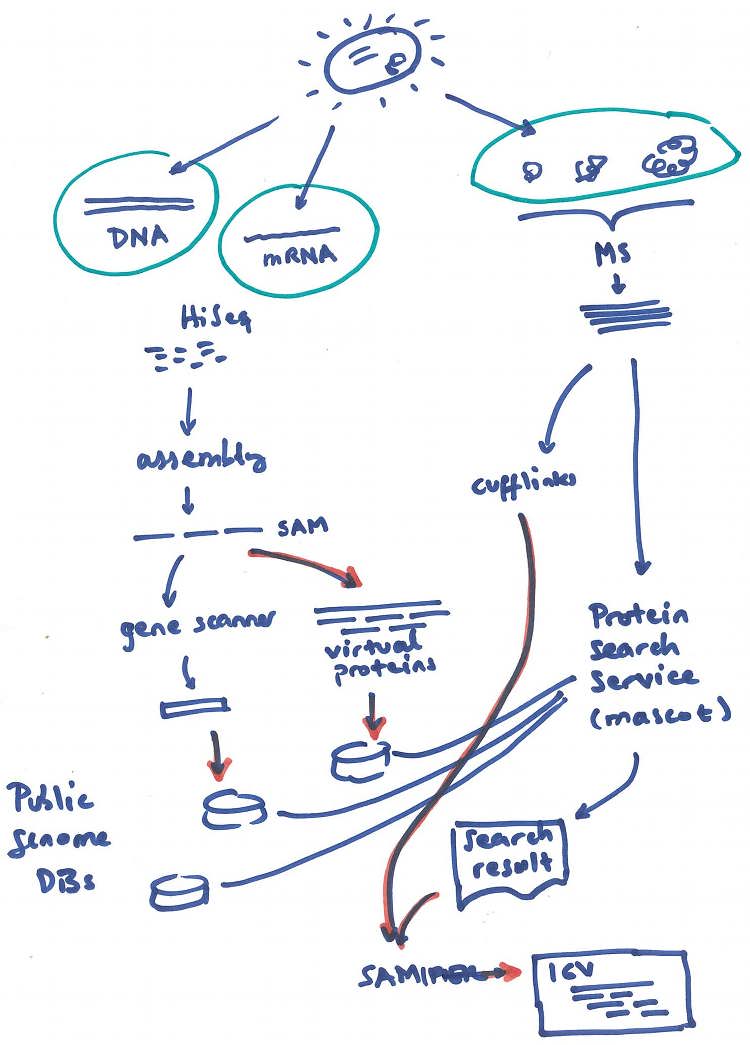 DNA
mRNA
MS
HiSeq
assembly
cufflinks
SAM
gene scanner
virtual
proteins
Protein
search
service
(mascot)
Public
Genome
DBs
search
result
SAMIFIER
IGV